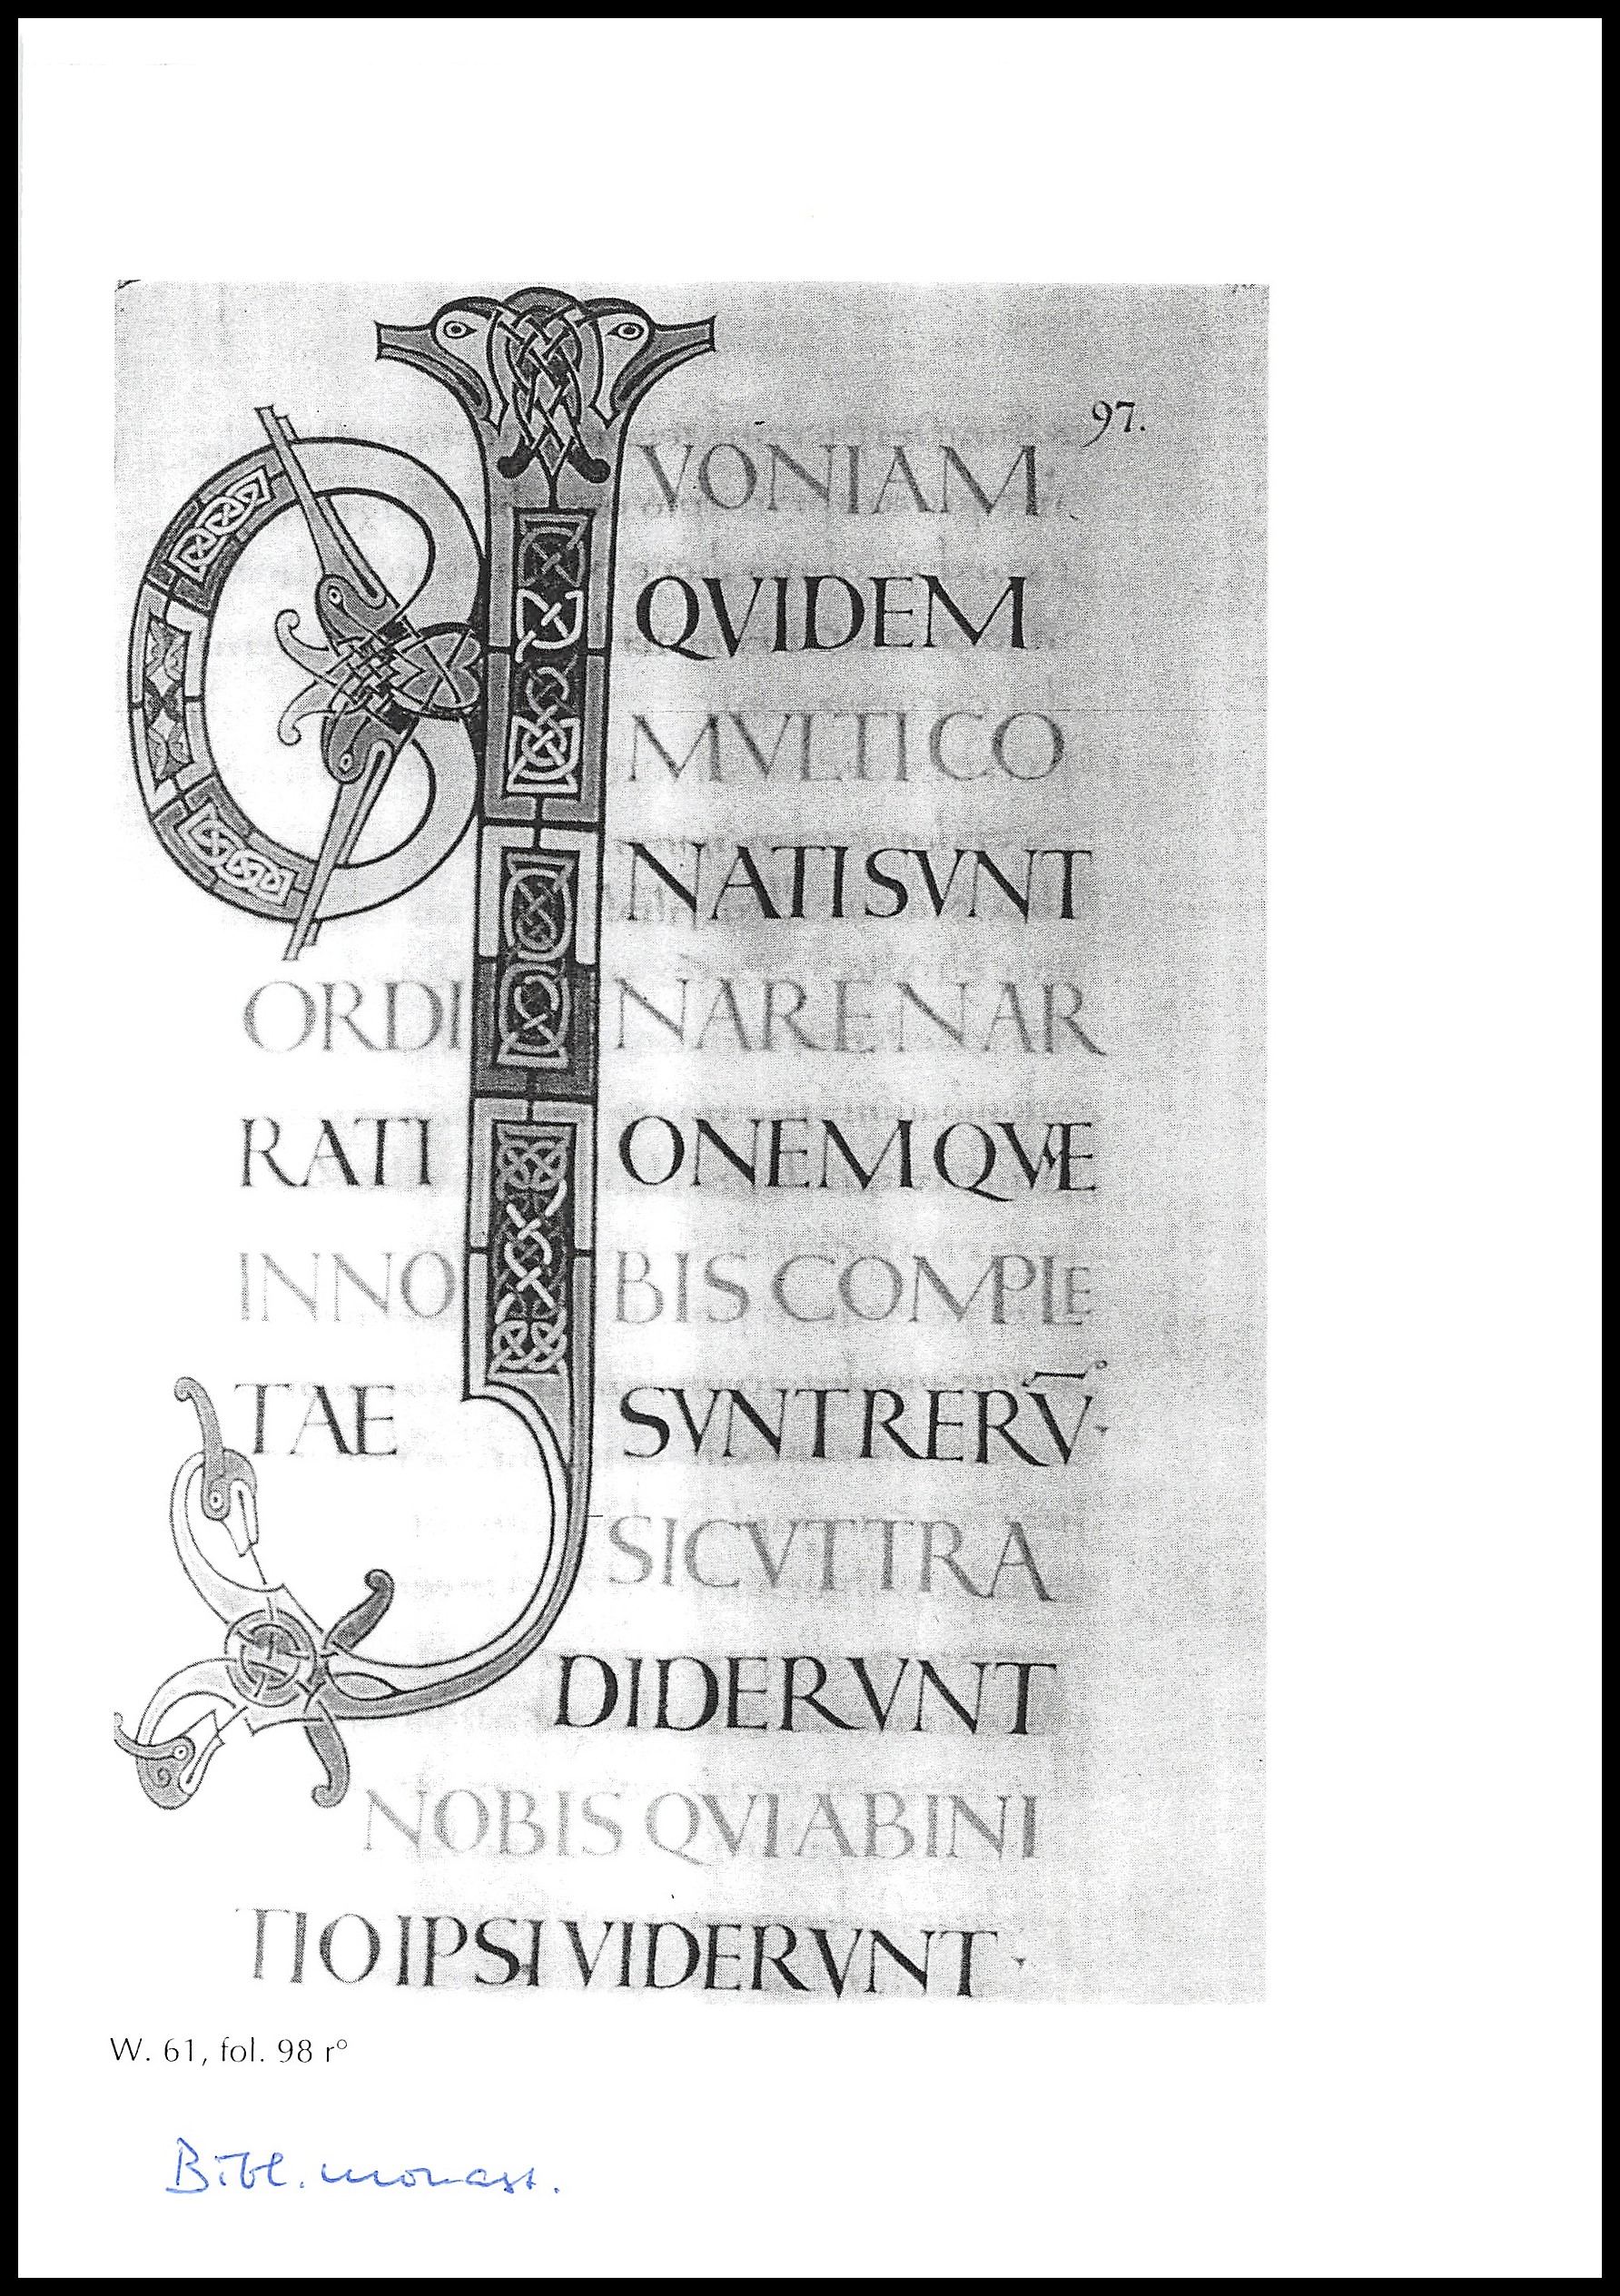 97.
QVONIAM
QVIDEM
MVLTI CO
NATI SVNT
ORDINARE NAR
RATIONEM QVE
IN NOBIS COMPLE
TAE SVNT RERV̄·
SICVT TRA
DIDERVNT
NOBIS QVI AB INI
TIO IPSI VIDERVNT·
W. 61, fol. 98 r°
Bibl. monast.